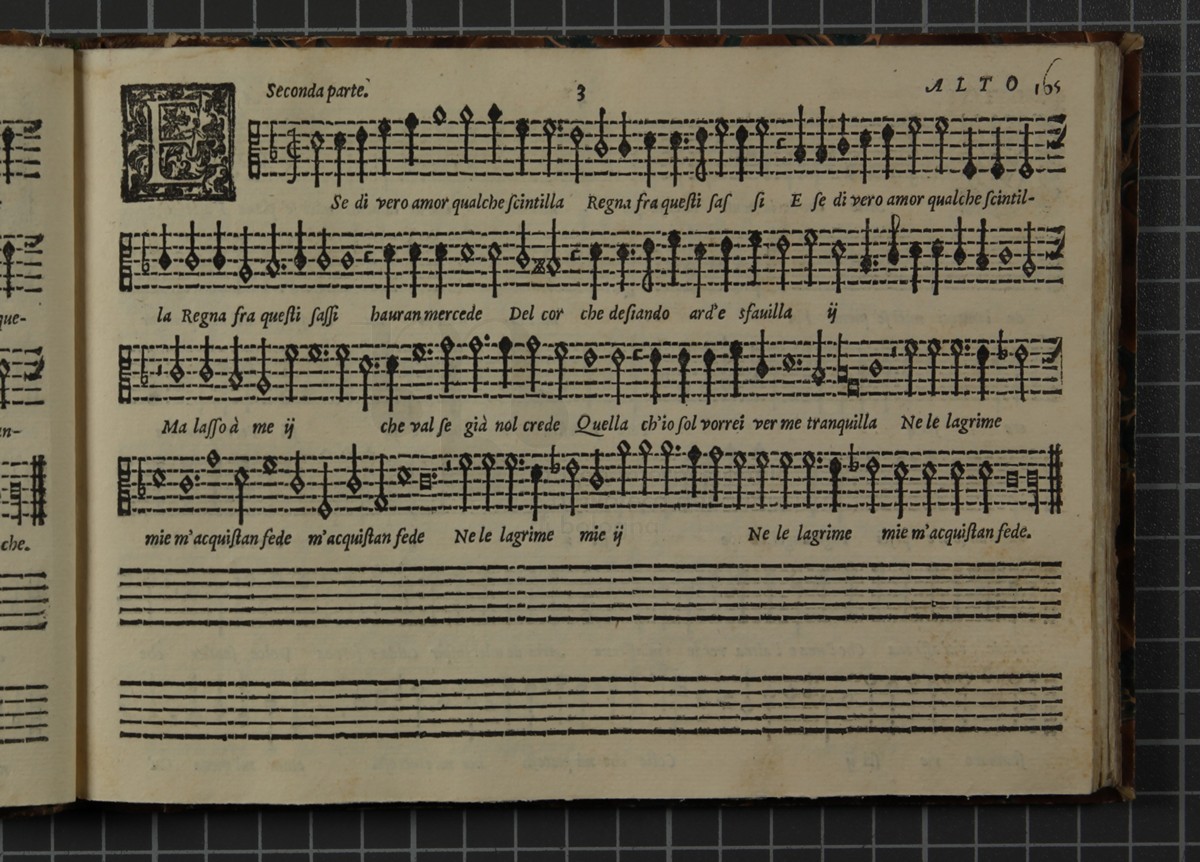 Seconda parte. 3 ALTO 165
E Se di vero amor qualche ſcintilla Regna fra queſti ſaſ ſi E ſe di vero amor qualche ſcintil-
la Regna fra queſti ſaſſi hauran mercede Del cor che deſiando ard'e sfauilla ij
que-
Ma laſſo à me ij che val ſe già nol crede Quella ch'io ſol vorrei ver me tranquilla Ne le lagrime
an-
mie m'acquiſtan fede m'acquiſtan fede Ne le lagrime mie ij Ne le lagrime mie m'acquiſtan fede.
che.